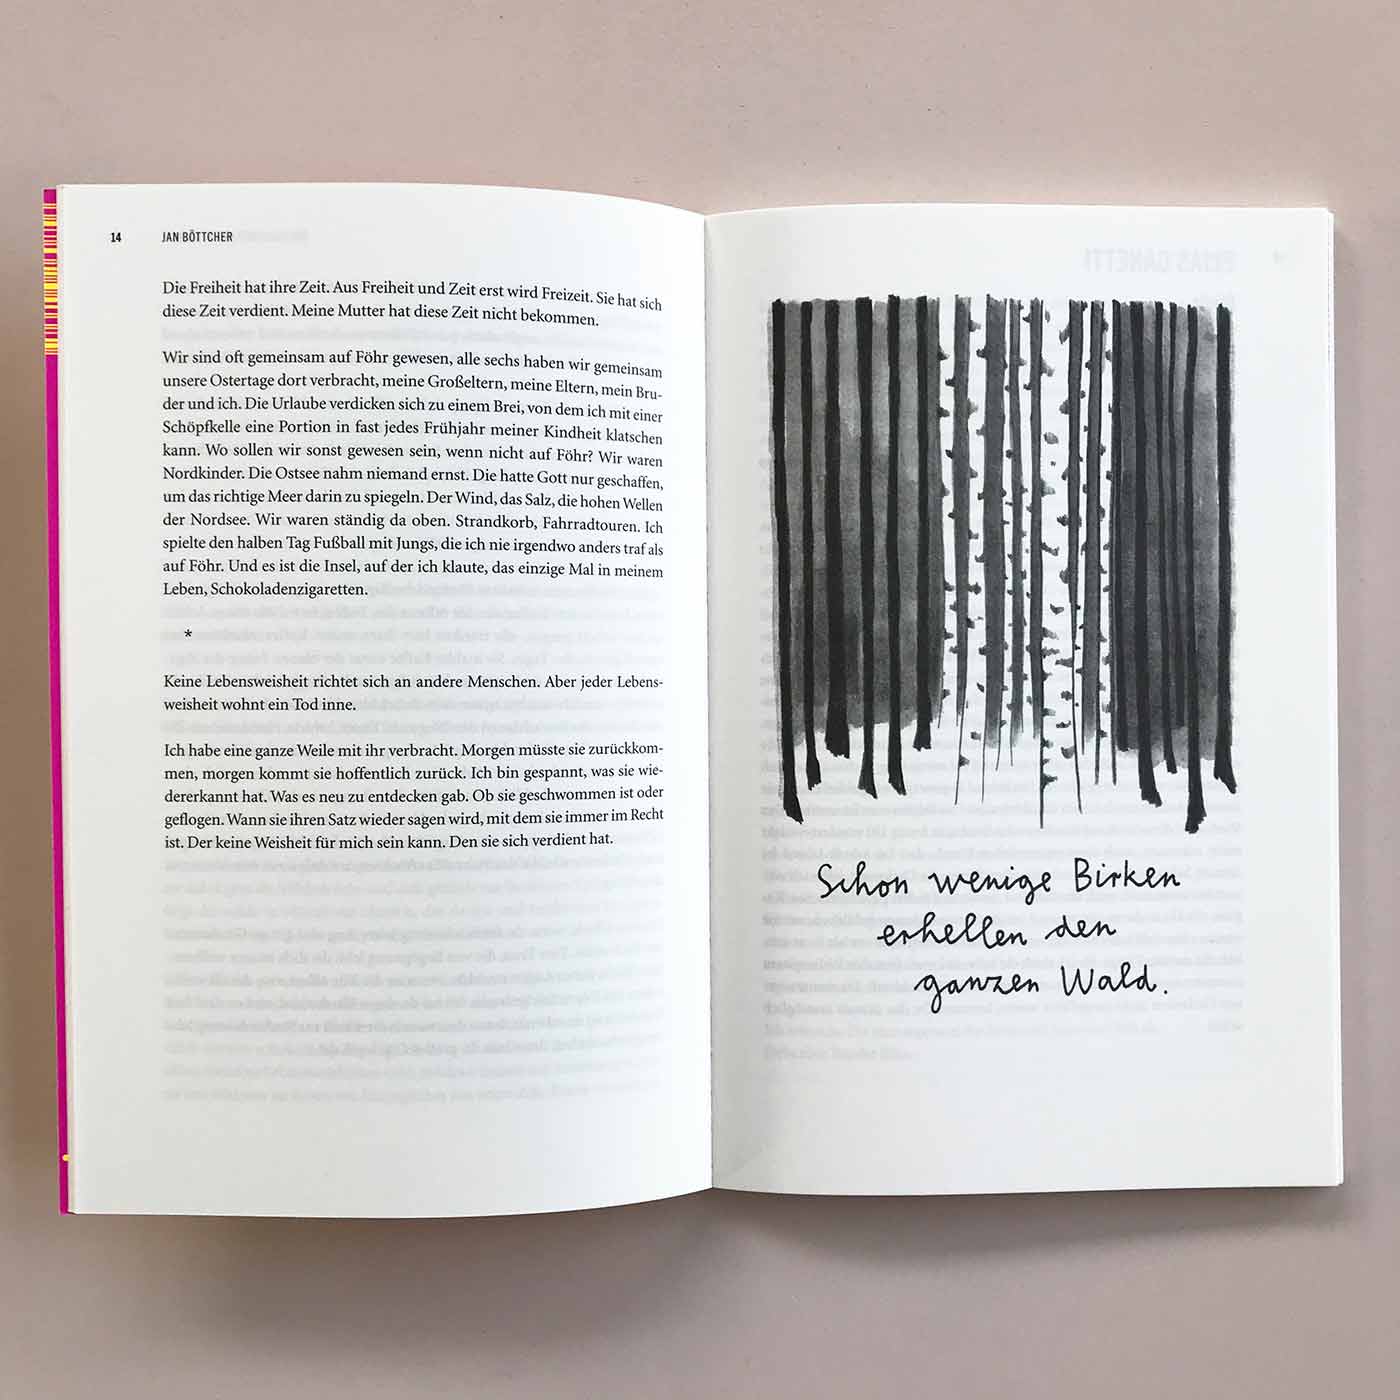 14 JAN BÖTTCHER
Die Freiheit hat ihre Zeit. Aus Freiheit und Zeit erst wird Freizeit. Sie hat sich
diese Zeit verdient. Meine Mutter hat diese Zeit nicht bekommen.
Wir sind oft gemeinsam auf Föhr gewesen, alle sechs haben wir gemeinsam
unsere Ostertage dort verbracht, meine Großeltern, meine Eltern, mein Bru-
der und ich. Die Urlaube verdicken sich zu einem Brei, von dem ich mit einer
Schöpfkelle eine Portion in fast jedes Frühjahr meiner Kindheit klatschen
kann. Wo sollen wir sonst gewesen sein, wenn nicht auf Föhr? Wir waren
Nordkinder. Die Ostsee nahm niemand ernst. Die hatte Gott nur geschaffen,
um das richtige Meer darin zu spiegeln. Der Wind, das Salz, die hohen Wellen
der Nordsee. Wir waren ständig da oben. Strandkorb, Fahrradtouren. Ich
spielte den halben Tag Fußball mit Jungs, die ich nie irgendwo anders traf als
auf Föhr. Und es ist die Insel, auf der ich klaute, das einzige Mal in meinem
Leben, Schokoladenzigaretten.
*
Keine Lebensweisheit richtet sich an andere Menschen. Aber jeder Lebens-
weisheit wohnt ein Tod inne.
Ich habe eine ganze Weile mit ihr verbracht. Morgen müsste sie zurückkom-
men, morgen kommt sie hoffentlich zurück. Ich bin gespannt, was sie wie-
dererkannt hat. Was es neu zu entdecken gab. Ob sie geschwommen ist oder
geflogen. Wann sie ihren Satz wieder sagen wird, mit dem sie immer im Recht
ist. Der keine Weisheit für mich sein kann. Den sie sich verdient hat.
Schon wenige Birken
erhellen den
ganzen Wald.